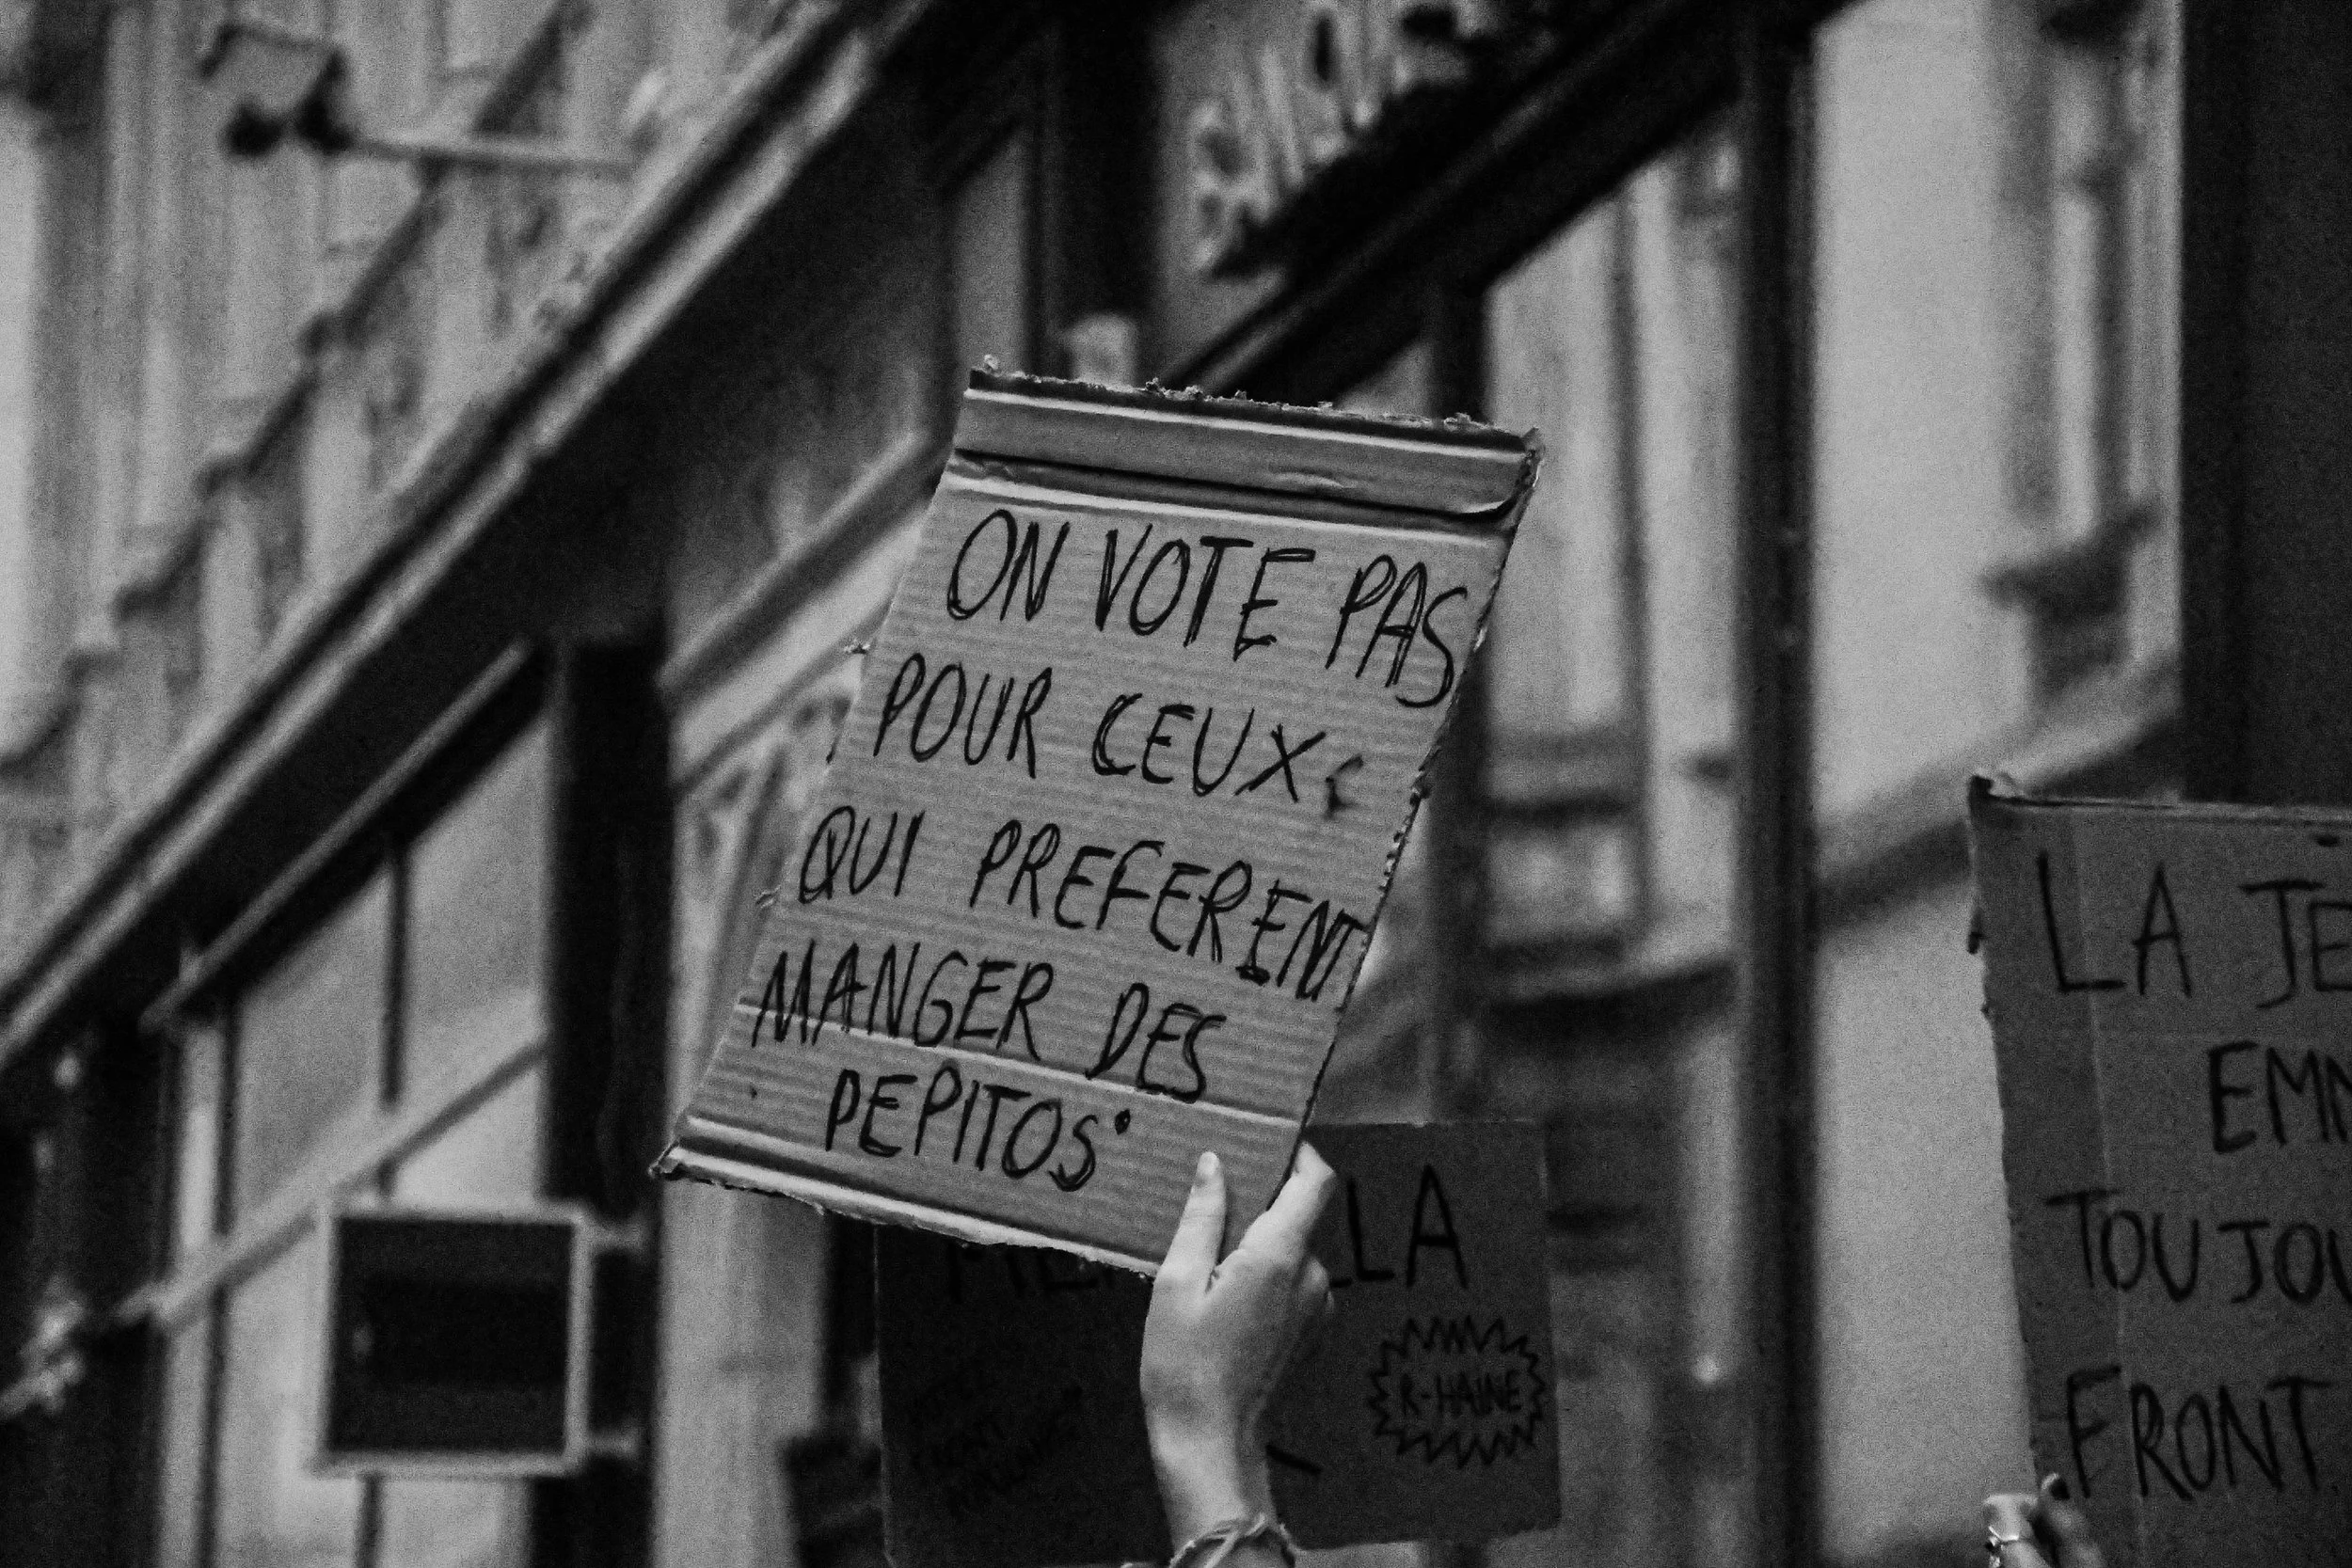 ON VOTE PAS
POUR CEUX
QUI PREFERENT
MANGER DES
PEPITOS
LA
R-HAINE
LA JE
EMM
TOUJOU
FRONT